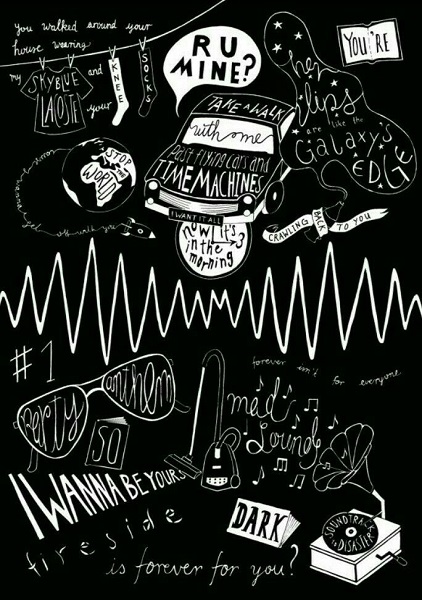 you walked around your
house wearing
my SKYBLUE
LACOSTE
and
your
KNEE
SOCKS
R U
MINE?
YOU'RE
her
lips
are like the
Galaxy's
EDGE
TAKE A WALK
with me
Past flying cars and
TIME MACHINES
I WANT IT ALL
now it's 3
in the
morning
STOP
THE
WORLD
off with you
CRAWLING
BACK
TO YOU
#1
Party
anthem
SO
forever isn't for everyone
mad
sounds
I WANNA BE YOURS
DARK
SOUNDTRACK
to DISASTER
fireside
is forever for you?